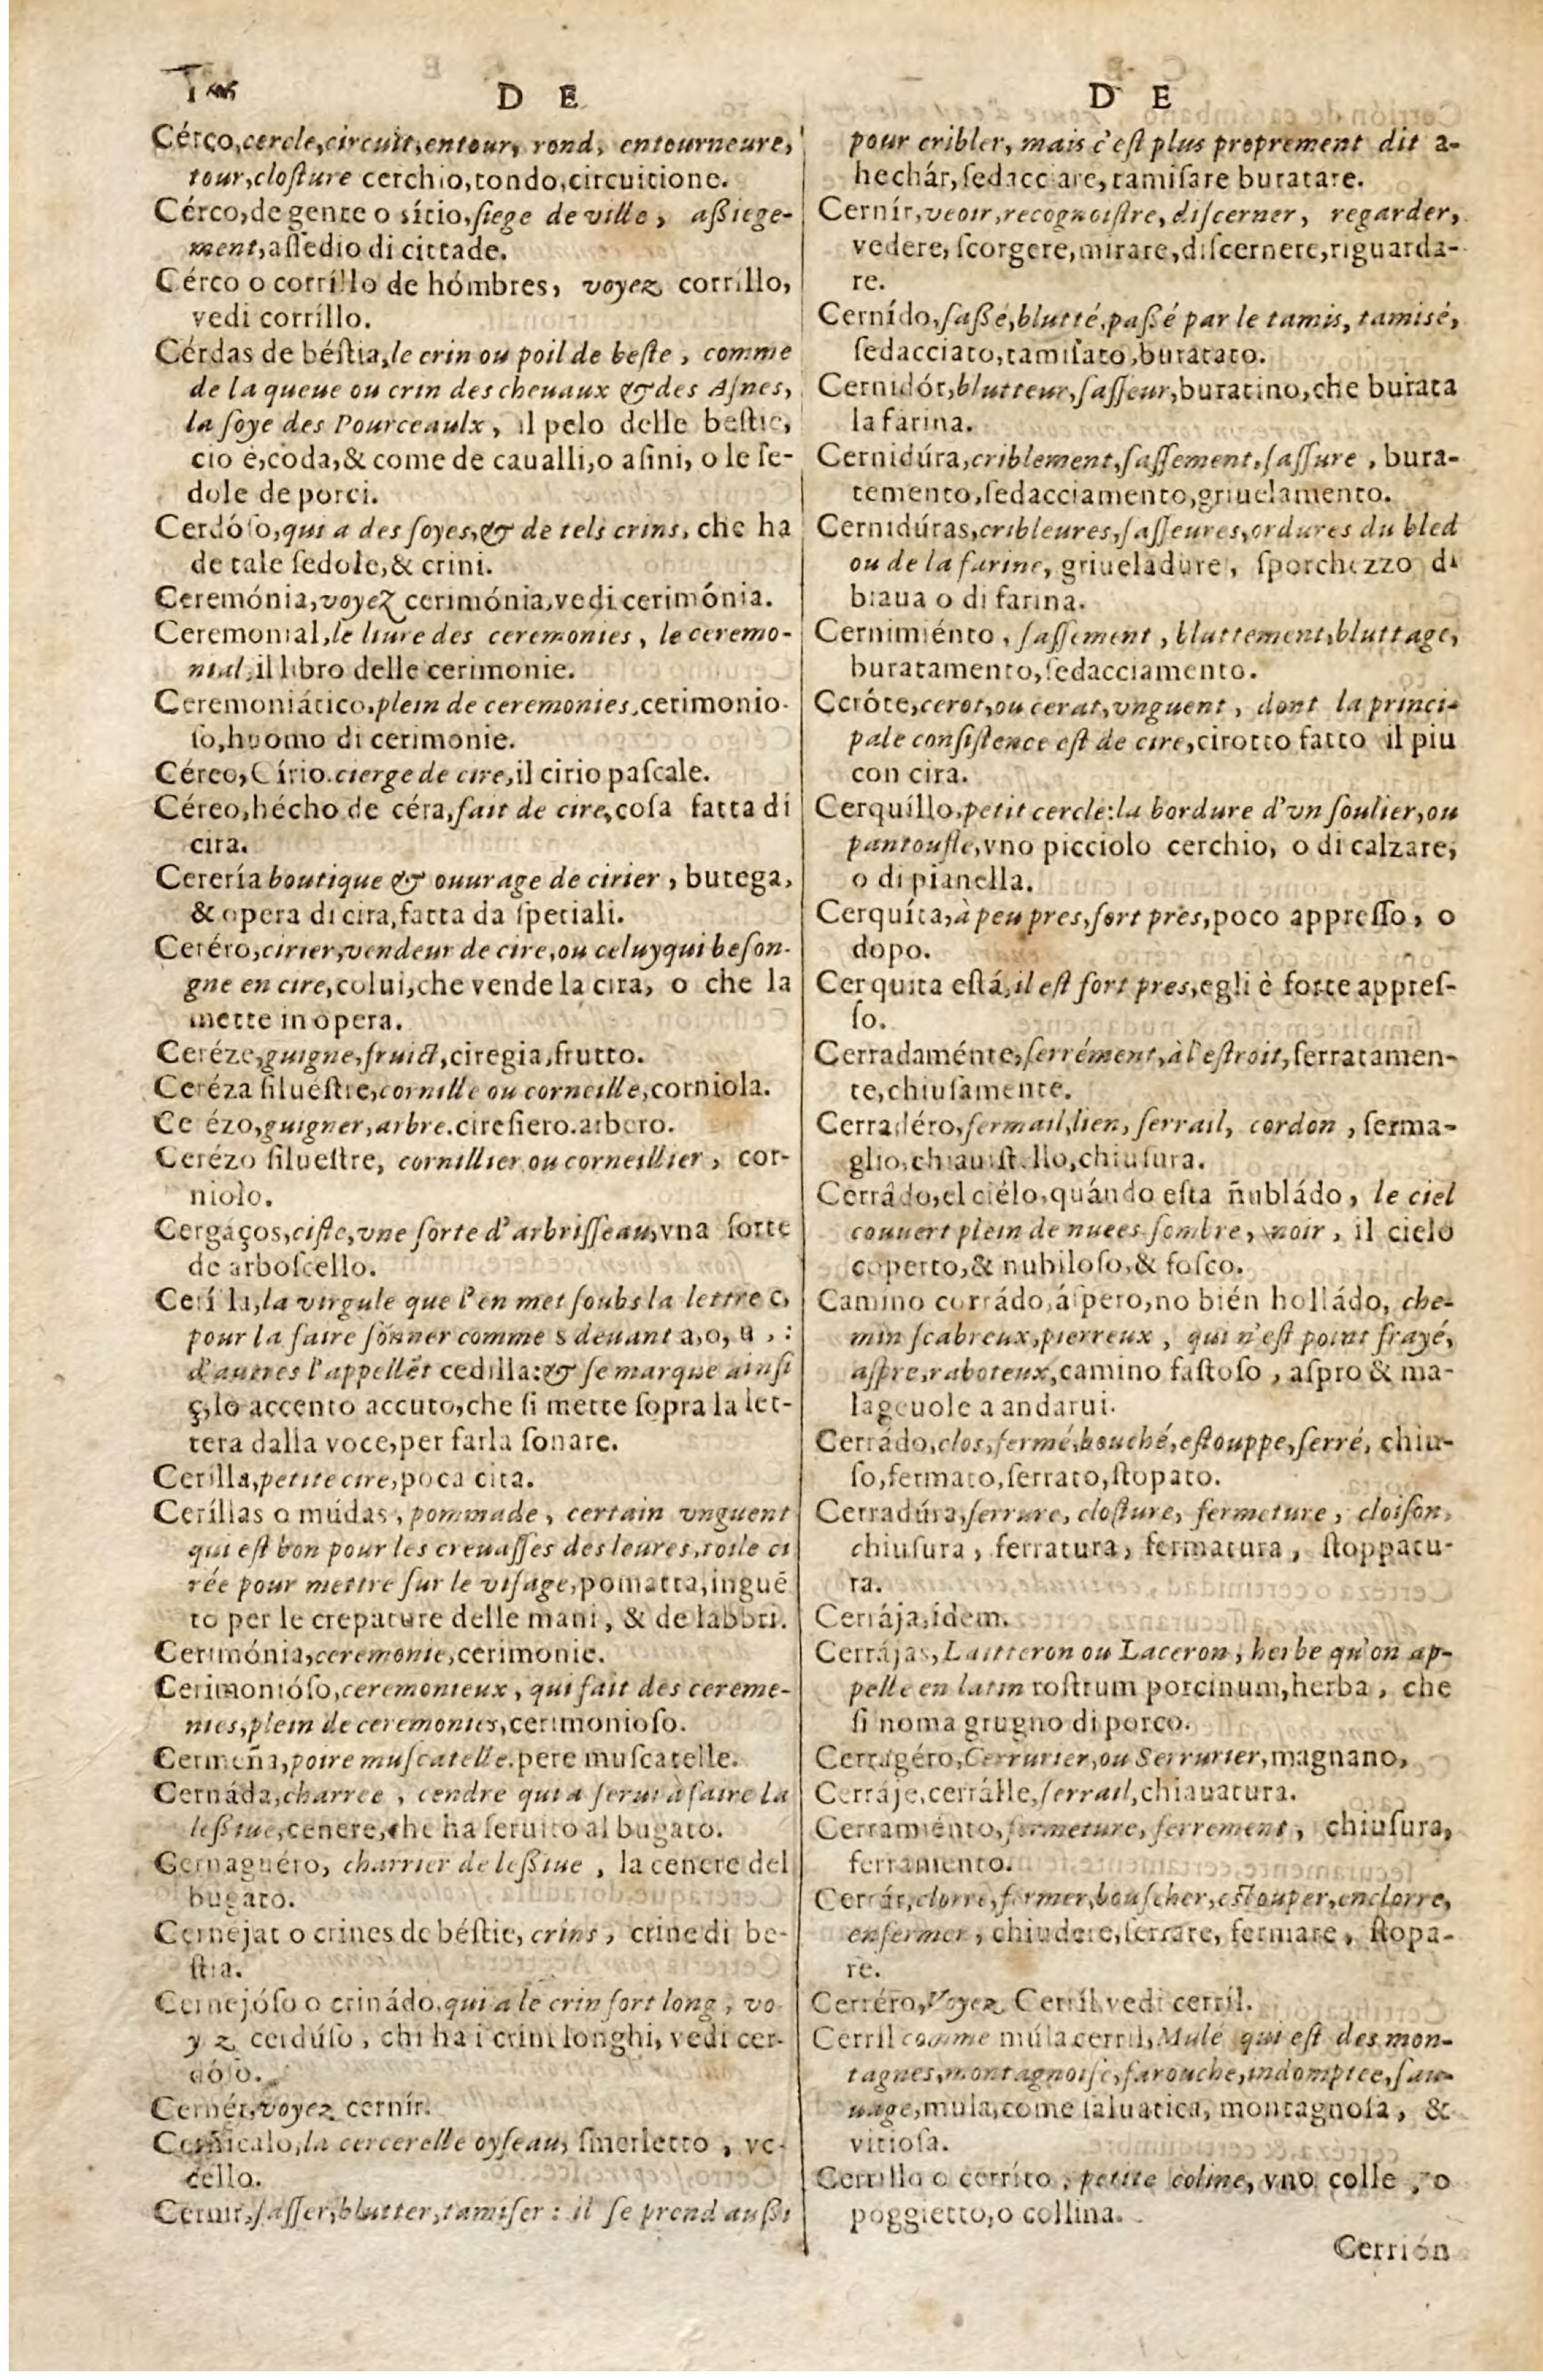 D E
Cérço,cercle,circuit,entour, rond, entourneure,
tour,closture cerchio,tondo,circuitione.
Cérco,de gente o sítio,siege de ville, aßiege-
ment,assedio di cittade.
Cérco o corríllo de hómbres, voyez corríllo,
vedi corríllo.
Cérdas de béstia,le crin ou poil de beste, comme
de la queue ou crin des cheuaux & des Asnes,
la soye des Pourceaulx, il pelo delle bestie,
cio é,coda,& come de caualli,o asini, o le se-
dole de porci.
Cerdóso,qui a des soyes,& de tels crins, che ha
de tale sedole,& crini.
Ceremónia,voyez cerimónia,vedi cerimónia.
Ceremonial,le liure des ceremonies, le ceremo-
nial,il libro delle cerimonie.
Ceremoniático,plein de ceremonies,cerimonio-
so,huomo di cerimonie.
Céreo,Círio.cierge de cire,il cirio pascale.
Céreo,hécho de céra,fait de cire,cosa fatta di
cira.
Cerería boutique & ouurage de cirier, butega,
& opera di cira,fatta da speciali.
Ceréro,cirier,vendeur de cire,ou celuy qui beson-
gne en cire,colui,che vende la cira, o che la
mette in opera.
Ceréze,guigne,fruict,ciregia,frutto.
Ceréza siluestre,cornille ou corneille,corniola.
Ce ézo,guigner,arbre.ciresiero.arboro.
Cerézo siluestre, cornillier ou corneillier, cor-
niolo.
Cergaços,ciste,vne sorte d'arbrisseau,vna sorte
de arboscello.
Cerí la,la virgule que l'en met soubs la lettre c,
pour la faire sonner comme s deuant a,o, u,:
d'autres l'appellẽt cedilla:& se marque ainsi
ç,lo accento accuto,che si mette sopra la let-
tera dalla voce,per farla sonare.
Cerílla,petite cire,poca cira.
Ceríllas o múdas, pommade, certain vnguent
qui est bon pour les creuasses des leures,toile ci
rée pour mettre sur le visage,pomatta,inguẽ
to per le crepature delle mani, & de labbri.
Cerimónia,ceremonie,cerimonie.
Cerimonióso,ceremonieux, qui fait des cereme-
nies,plein de ceremonies,cerimonioso.
Cermeña,poire muscatelle.pere muscatelle.
Cernáda,charree, cendre qui a serui à faire la
leßiue,cenere,che ha seruito al bugato.
Cernaguéro, charrier de leßiue, la cenere del
bugato.
Cernejat o crines de béstie, crins, crine di be-
stia.
Cernejóso o crinádo,qui a le crin fort long, vo
y z cerdúso, chi ha i crini longhi, vedi cer-
dóso.
Cernér,voyez cernír.
Cernícalo,la cercerelle oyseau, smerletto, vc-
cello.
Cernir,sasser,blutter,tamiser: il se prend außi
D E
pour cribler, mais c'est plus proprement dit a-
hechár,sedacciare,tamisare buratare.
Cernír,veoir,recognoistre,discerner, regarder,
vedere,scorgere,mirare,discernere,riguarda-
re.
Cernído,saßé,blutté,paßé par le tamis, tamisé,
sedacciato,tamisato,buratato.
Cernidór,blutteur,sasseur,buratino,che burata
la farina.
Cernidúra,criblement,sassement,sassure, bura-
temento,sedacciamento,griuelamento.
Cernidúras,cribleures,sasseures,ordures du bled
ou de la farine, griueladure, sporchezzo di
biaua o di farina.
Cernimiénto, sassement, bluttement,bluttage,
buratamento,sedacciamento.
Ceróte,cerot,ou cerat,vnguent, dont la princi-
pale consistence est de cire,cirotto fatto il piu
con cira.
Cerquíllo,petit cercle:la bordure d'vn soulier,ou
pantoufle,vno picciolo cerchio, o di calzare,
o di pianella.
Cerquíta,à peu pres,fort pres,poco appresso, o
dopo.
Cerquita está,il est fort pres,egli è forte appres-
so.
Cerradaménte,serrément,à l'estroit,serratamen-
te,chiusamente.
Cerradéro,fermail,lien, serrail, cordon, serma-
glio,chiauistello,chiusura.
Cerrádo,el ciélo,quándo esta ñubládo, le ciel
couuert plein de nuees sombre, noir, il cielo
coperto,& nubiloso,& fosco.
Camino corrádo,áspero,no bién holládo, che-
min scabreux,pierreux, qui n'est point frayé,
aspre,raboteux,camino fastoso, aspro & ma-
lageuole a andarui.
Cerrádo,clos,fermé,bouché,estouppe,serré, chiu-
so,fermato,serrato,stopato.
Cerradúra,serrure, closture, fermeture, cloison,
chiusura, ferratura, fermatura, stoppatu-
ra.
Cerrája,ídem.
Cerrájas,Laitteron ou Laceron, herbe qu'on ap-
pelle en latin rostrum porcinum,herba, che
si noma grugno di porco.
Cerragéro,Cerrurier,ou Serrurier,magnano,
Cerráje,cerrálle,serrail,chiauatura.
Cerramiénto,fermeture,ferrement, chiusura,
ferramento.
Cerrár,clorre,fermer,bouscher,estouper,enclorre,
enfermer, chiudere,serrare, fermare, stopa-
re.
Cerréro,Voyez Cerríl,vedi cerril.
Cerril comme múla cerril,Mule qui est des mon-
tagnes,montagnoise,farouche,indomptee,sau-
uage,mula,come saluatica, montagnosa, &
vitiosa.
Cerrillo o cerríto, petite coline, vno colle, o
poggietto,o collina.
Cerrión